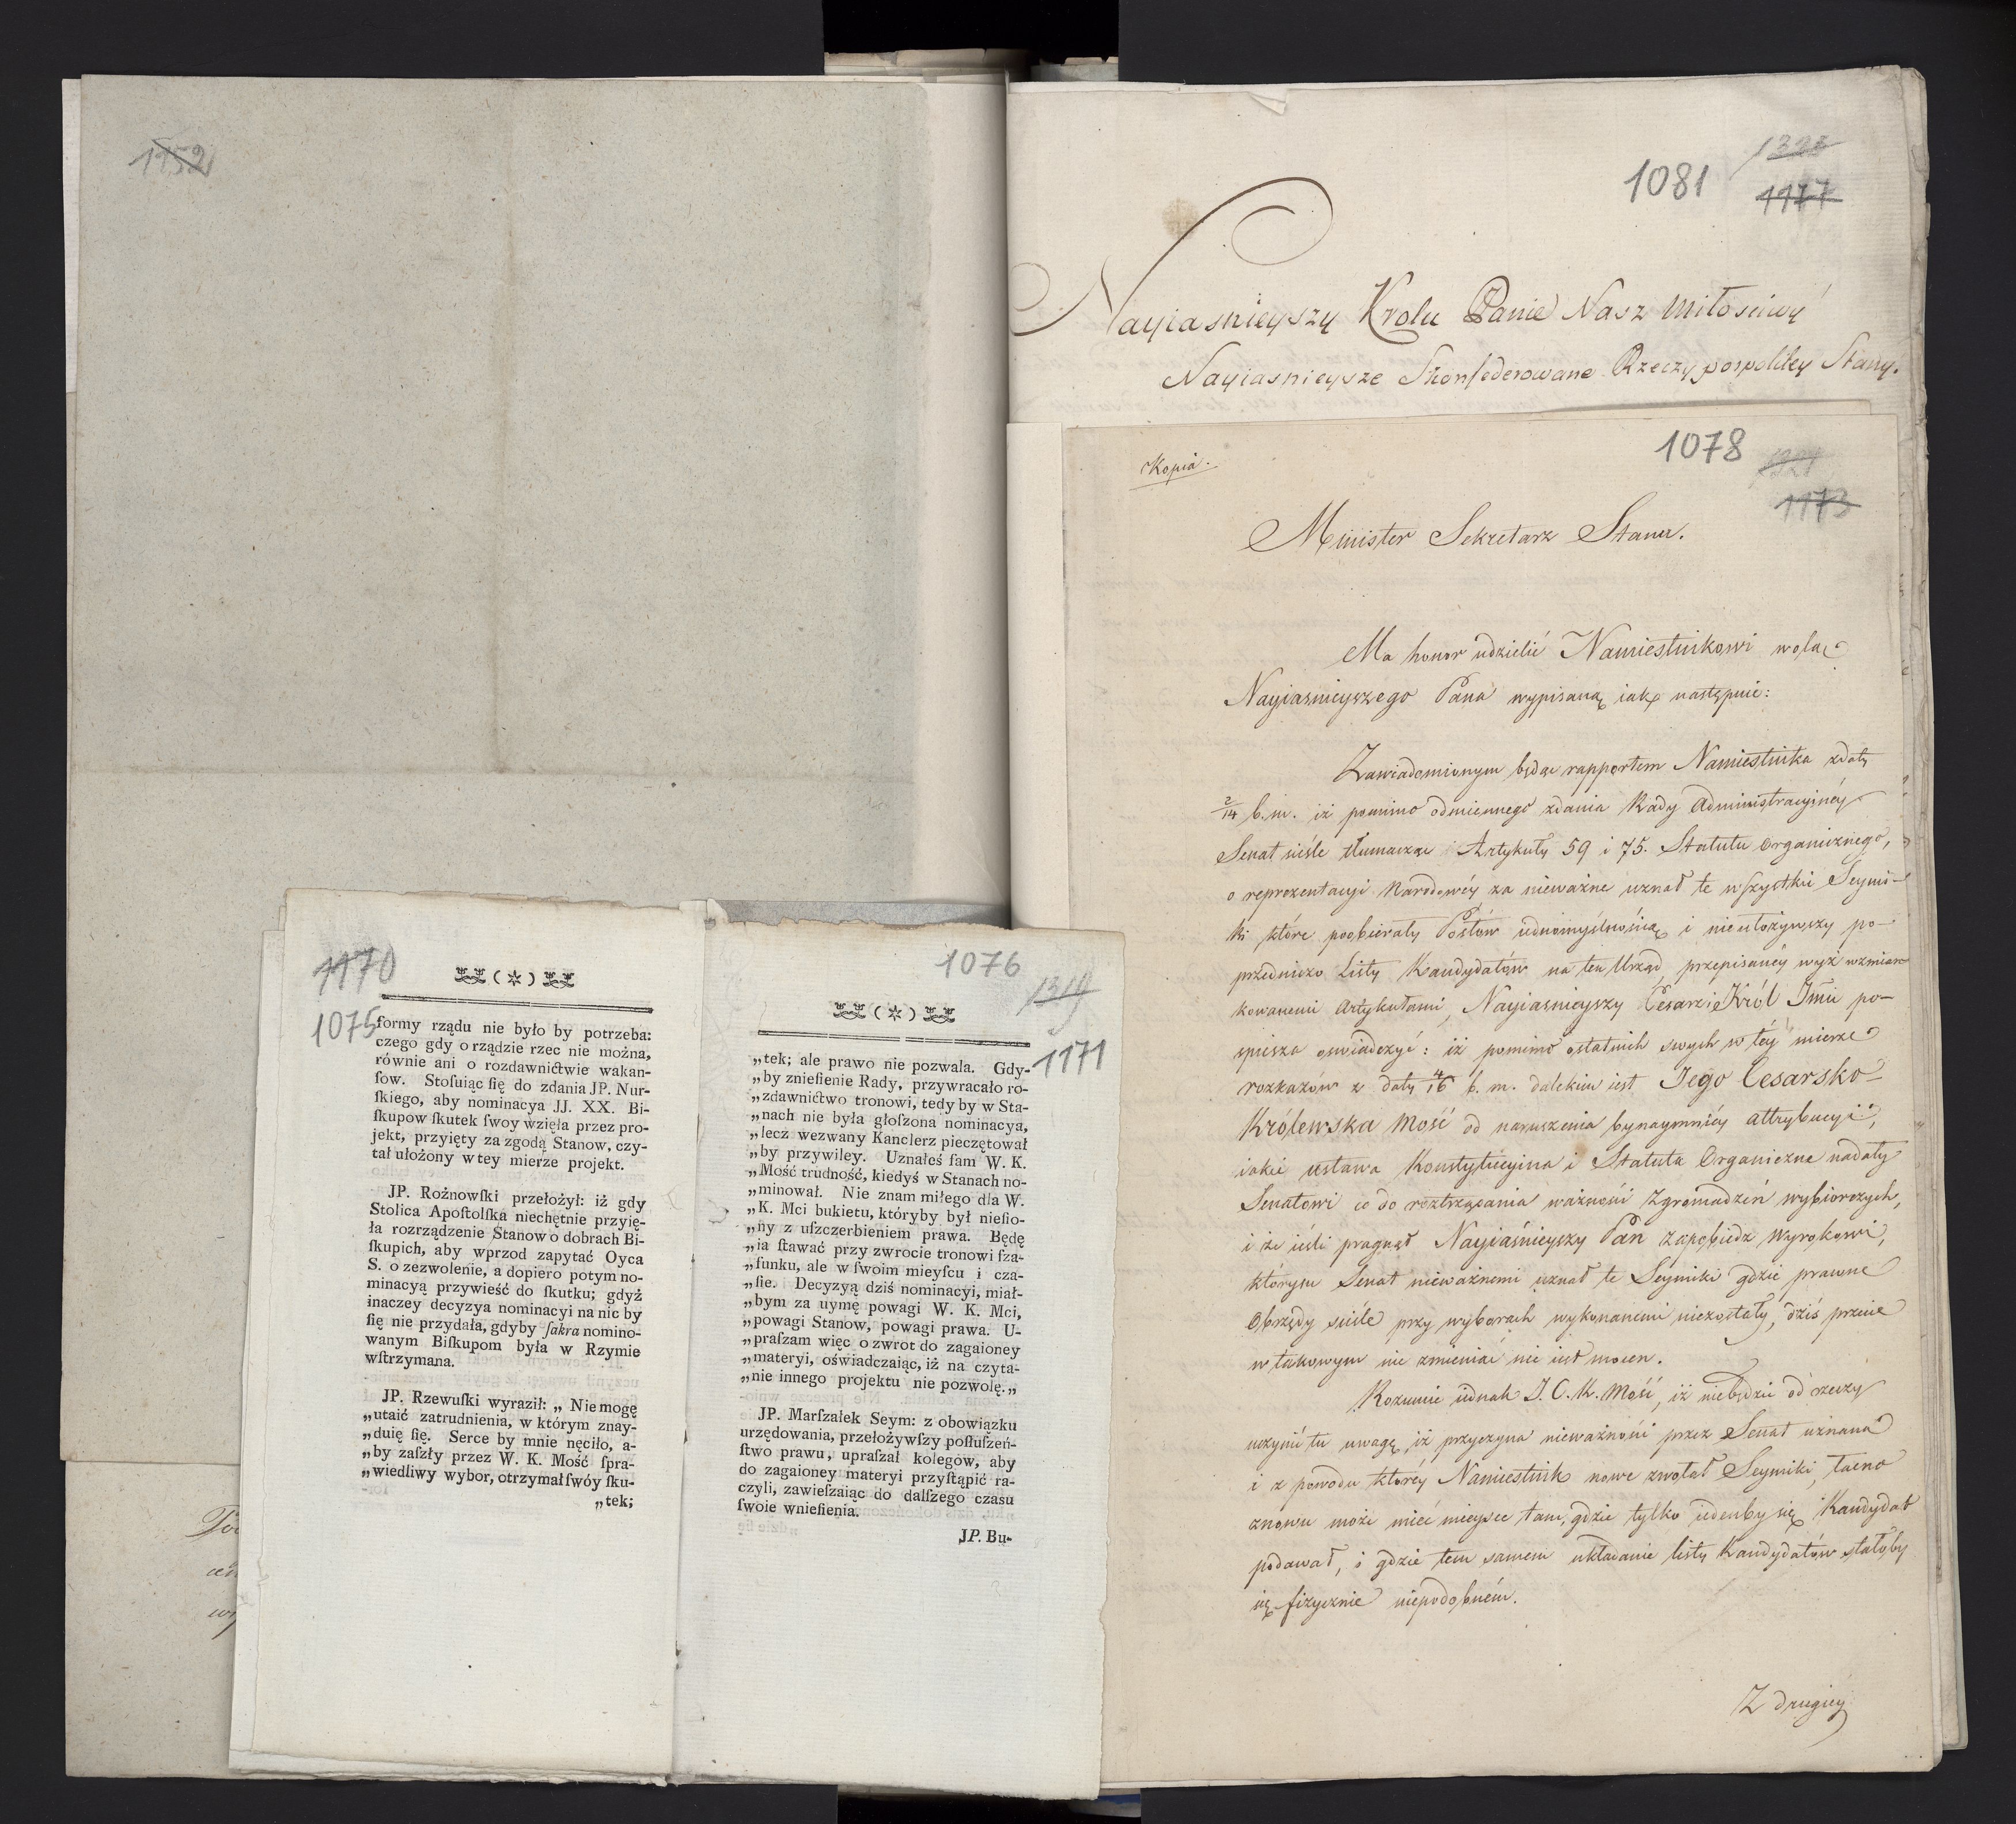 1152
1323
1081
1177
Nayiasnieyszy Krolu Panie Nasz Miłosciwy
Nayiasnieysze Skonfederowane Rzeczypospolitey Stany.
1078
1321
1173
Kopia.
Minister Sekretarz Stanu.
Ma honor udzielić Namiestnikowi wolą
Nayiasnieyszego Pana wypisaną iak następuie:
Zawiadomionym będąc rapportem Namiestnika z daty
2/14 b. m. iż pomimo odmiennego zdania Rady Administracyinéy
Senat ściśle tłumacząc Artykuły 59 i 75. Statutu Organicznego,
o reprezentacyi Narodowéy za nieważne uznał te wszystkie Seymi-
ki które poobierały Posłów iednomyślnością i nieułożywszy po-
przedniczo Listy Kandydatów na ten Urząd przepisanéy wyż wzmian-
kowanemi Artykułami, Nayiasnieyszy Cesarz i Król Jmć po-
spiesza oswiadczyć: iż pomimo ostatnich swych w téy mierze
rozkazów z daty 4/16 b. m. dalekim iest Jego Cesarsko-
Królewska Mość od naruszenia bynaymniéy attrybucyi,
iakie ustawa Konstytucyina i Statuta Organiczne nadały
Senatowi co do roztrząsania ważności Zgromadzeń wybiorczych,
i że ieśli pragnął Nayiaśnieyszy Pan zapobiedz wyrokowi,
którym Senat nieważnemi uznał te Seymiki gdzie prawne
Obrzędy ściśle przy wyborach wykonanemi niezostały, dziś przecie
w takowym nic zmieniać nie iest mocen.
Rozumie iednak J. C. K. Mość, iż niebędzie od rzeczy
uczynić tu uwagę, iż przyczyna nieważności przez Senat uznana
i z powodu któréy Namiestnik nowe zwołał Seymiki, łacno
znowu może mieć mieysce tam, gdzie tylko iedenby się Kandydat
podawał, i gdzie tem samem układanie listy Kandydatów stałoby
się fizycznie niepodobném.
Z drugiéy
1170
1075
(*)
formy rządu nie było by potrzeba:
czego gdy o rządzie rzec nie można,
równie ani o rozdawnićtwie wakan-
ſow. Stoſuiąc ſię do zdania JP. Nur-
ſkiego, aby nominacya JJ. XX. Bi-
ſkupow ſkutek ſwoy wzięła przez pro-
jekt, przyięty za zgodą Stanow, czy-
tał ułożony w tey mierze projekt.
JP. Rożnowſki przełożył: iż gdy
Stolica Apoſtolſka niechętnie przyię-
ła rozrządzenie Stanow o dobrach Bi-
ſkupich, aby wprzod zapytać Oyca
S. o zezwolenie, a dopiero potym no-
minacyą przywieść do ſkutku; gdyż
inaczey decyzya nominacyi na nic by
ſię nie przydała, gdyby ſakra nomino-
wanym Biſkupom była w Rzymie
wſtrzymana.
JP. Rzewuſki wyraził: „ Nie mogę
„utaić zatrudnienia, w którym znay-
„duię ſię. Serce by mnie nęciło, a-
„by zaſzły przez W. K. Mość ſpra-
„wiedliwy wybor, otrzymał ſwóy ſku-
„tek;
1076
1319
1171
(*)
„tek; ale prawo nie pozwala. Gdy-
„by znieſienie Rady, przywracało ro-
„zdawnićtwo tronowi, tedy by w Sta-
„nach nie była głoſzona nominacya,
„lecz wezwany Kanclerz pieczętował
„by przywiley. Uznałeś ſam W. K.
„Mość trudność, kiedyś w Stanach no-
„minował. Nie znam miłego dla W.
„K. Mci bukietu, któryby był nieſio-
„ny z uſzczerbieniem prawa. Będę
„ia ſtawać przy zwrocie tronowi ſza-
„ſunku, ale w ſwoim mieyſcu i cza-
„ſie. Decyzyą dziś nominacyi, miał-
„bym za uymę powagi W. K. Mci,
„powagi Stanow, powagi prawa. U-
„praſzam więc o zwrot do zagaioney
„materyi, oświadczaiąc, iż na czyta-
„nie innego projektu nie pozwolę.„
JP. Marſzałek Seym: z obowiązku
urzędowania, przełożywſzy poſłuſzeń-
ſtwo prawu, upraſzał kolegow, aby
do zagaioney materyi przyſtąpić ra-
czyli, zawieſzaiąc do dalſzego czasu
ſwoie wnieſienia.
JP. Bu-